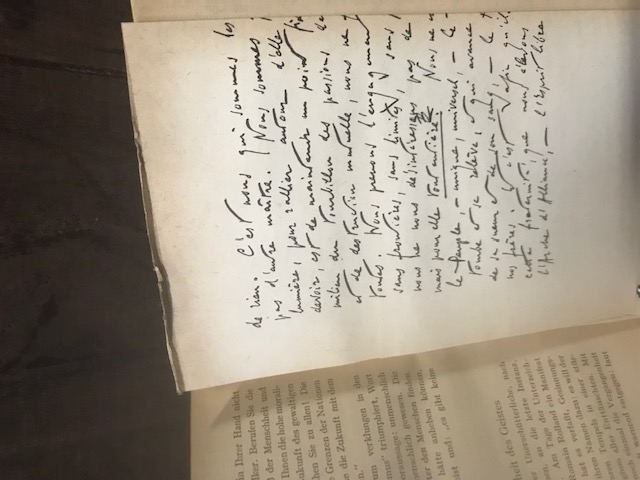 in Ihrer Hand nicht
lker. Berufen Sie die
d der Menschheit und
Ihnen die hohe morali-
ukunft des gewaltigen
hen Sie zu allen! Die
e Grenzen der Nationen
e die Zukunft mit dem
n."
um verklungen in den
mus" triumphiert, Wort
eraussage: unmenschlich
enschlich gewesen. Die
ter des Menschen finden.
hätte anheben können,
eist und: „es gibt keine
heit des Geistes
er Unerschütterliche, nach
en, an die letzte Instanz,
Am Tage der Unterzeich-
Romain Rolland ein Manifest
hat es verfaßt, Gesinnungs-
ihren Namen dazu: es will der
aren Tempels in einer stür-
ghum aller Enttäuschten. Mit
noch einmal die Vergangenheit
warnend entgegen: laut
de rien. C'est nous qui sommes les
pas d'autre maître. Nous sommes
lumière, pour rallier autour d'elle
devoir, est de maintenir un point fixe
milieu du tourbillon des passions de
et de destruction mutuelle, nous ne
toutes. Nous prenons l'engagement
sans frontières, sans limites, sans
nous ne nous désintéressons pas de
mais pour elle tout entière. Nous ne
le Peuple, – unique, universel, – le
tombe et se relève, et qui avance
de sa sueur et de son sang, – le
nos frères. Et c'est afin qu'il
cette fraternité, que nous élevons
l'Arche d'Alliance, – l'Esprit libre